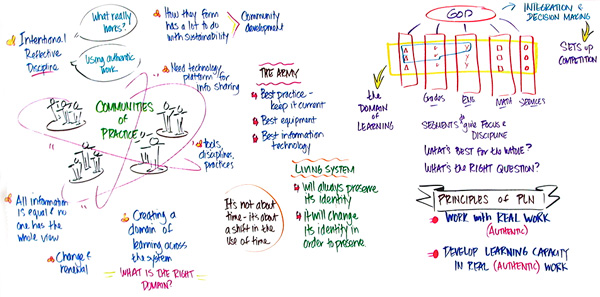 What really
works?
Intentional
Reflective
Discipline
Using authentic
work.
How they form
has a lot to do
with sustainability
Community
development
Need technology
platform for
info sharing
COMMUNITIES
OF
PRACTICE
tools,
disciplines,
practices
All information
is equal & no
one has the
whole view
Change &
renewal
Creating a
domain of
learning across
the system
WHAT IS THE RIGHT
DOMAIN?
THE ARMY
Best practice -
keep it current
Best equipment
Best information
technology
It's not about
time - it's about
a shift in the
use of time.
LIVING SYSTEM
will always preserve
its identity
it will change
its identity in
order to preserve
GOD
INTEGRATION &
DECISION MAKING
SETS UP
COMPETITION
the
DOMAIN
of
LEARNING
ELIS
MATH
SERVICES
SEGMENTS to give FOCUS &
DISCIPLINE
WHAT'S BEST for the WHOLE?
WHAT'S the RIGHT QUESTION?
PRINCIPLES of PLN
WORK with REAL WORK
(AUTHENTIC)
DEVELOP LEARNING CAPACITY
IN REAL (AUTHENTIC) WORK